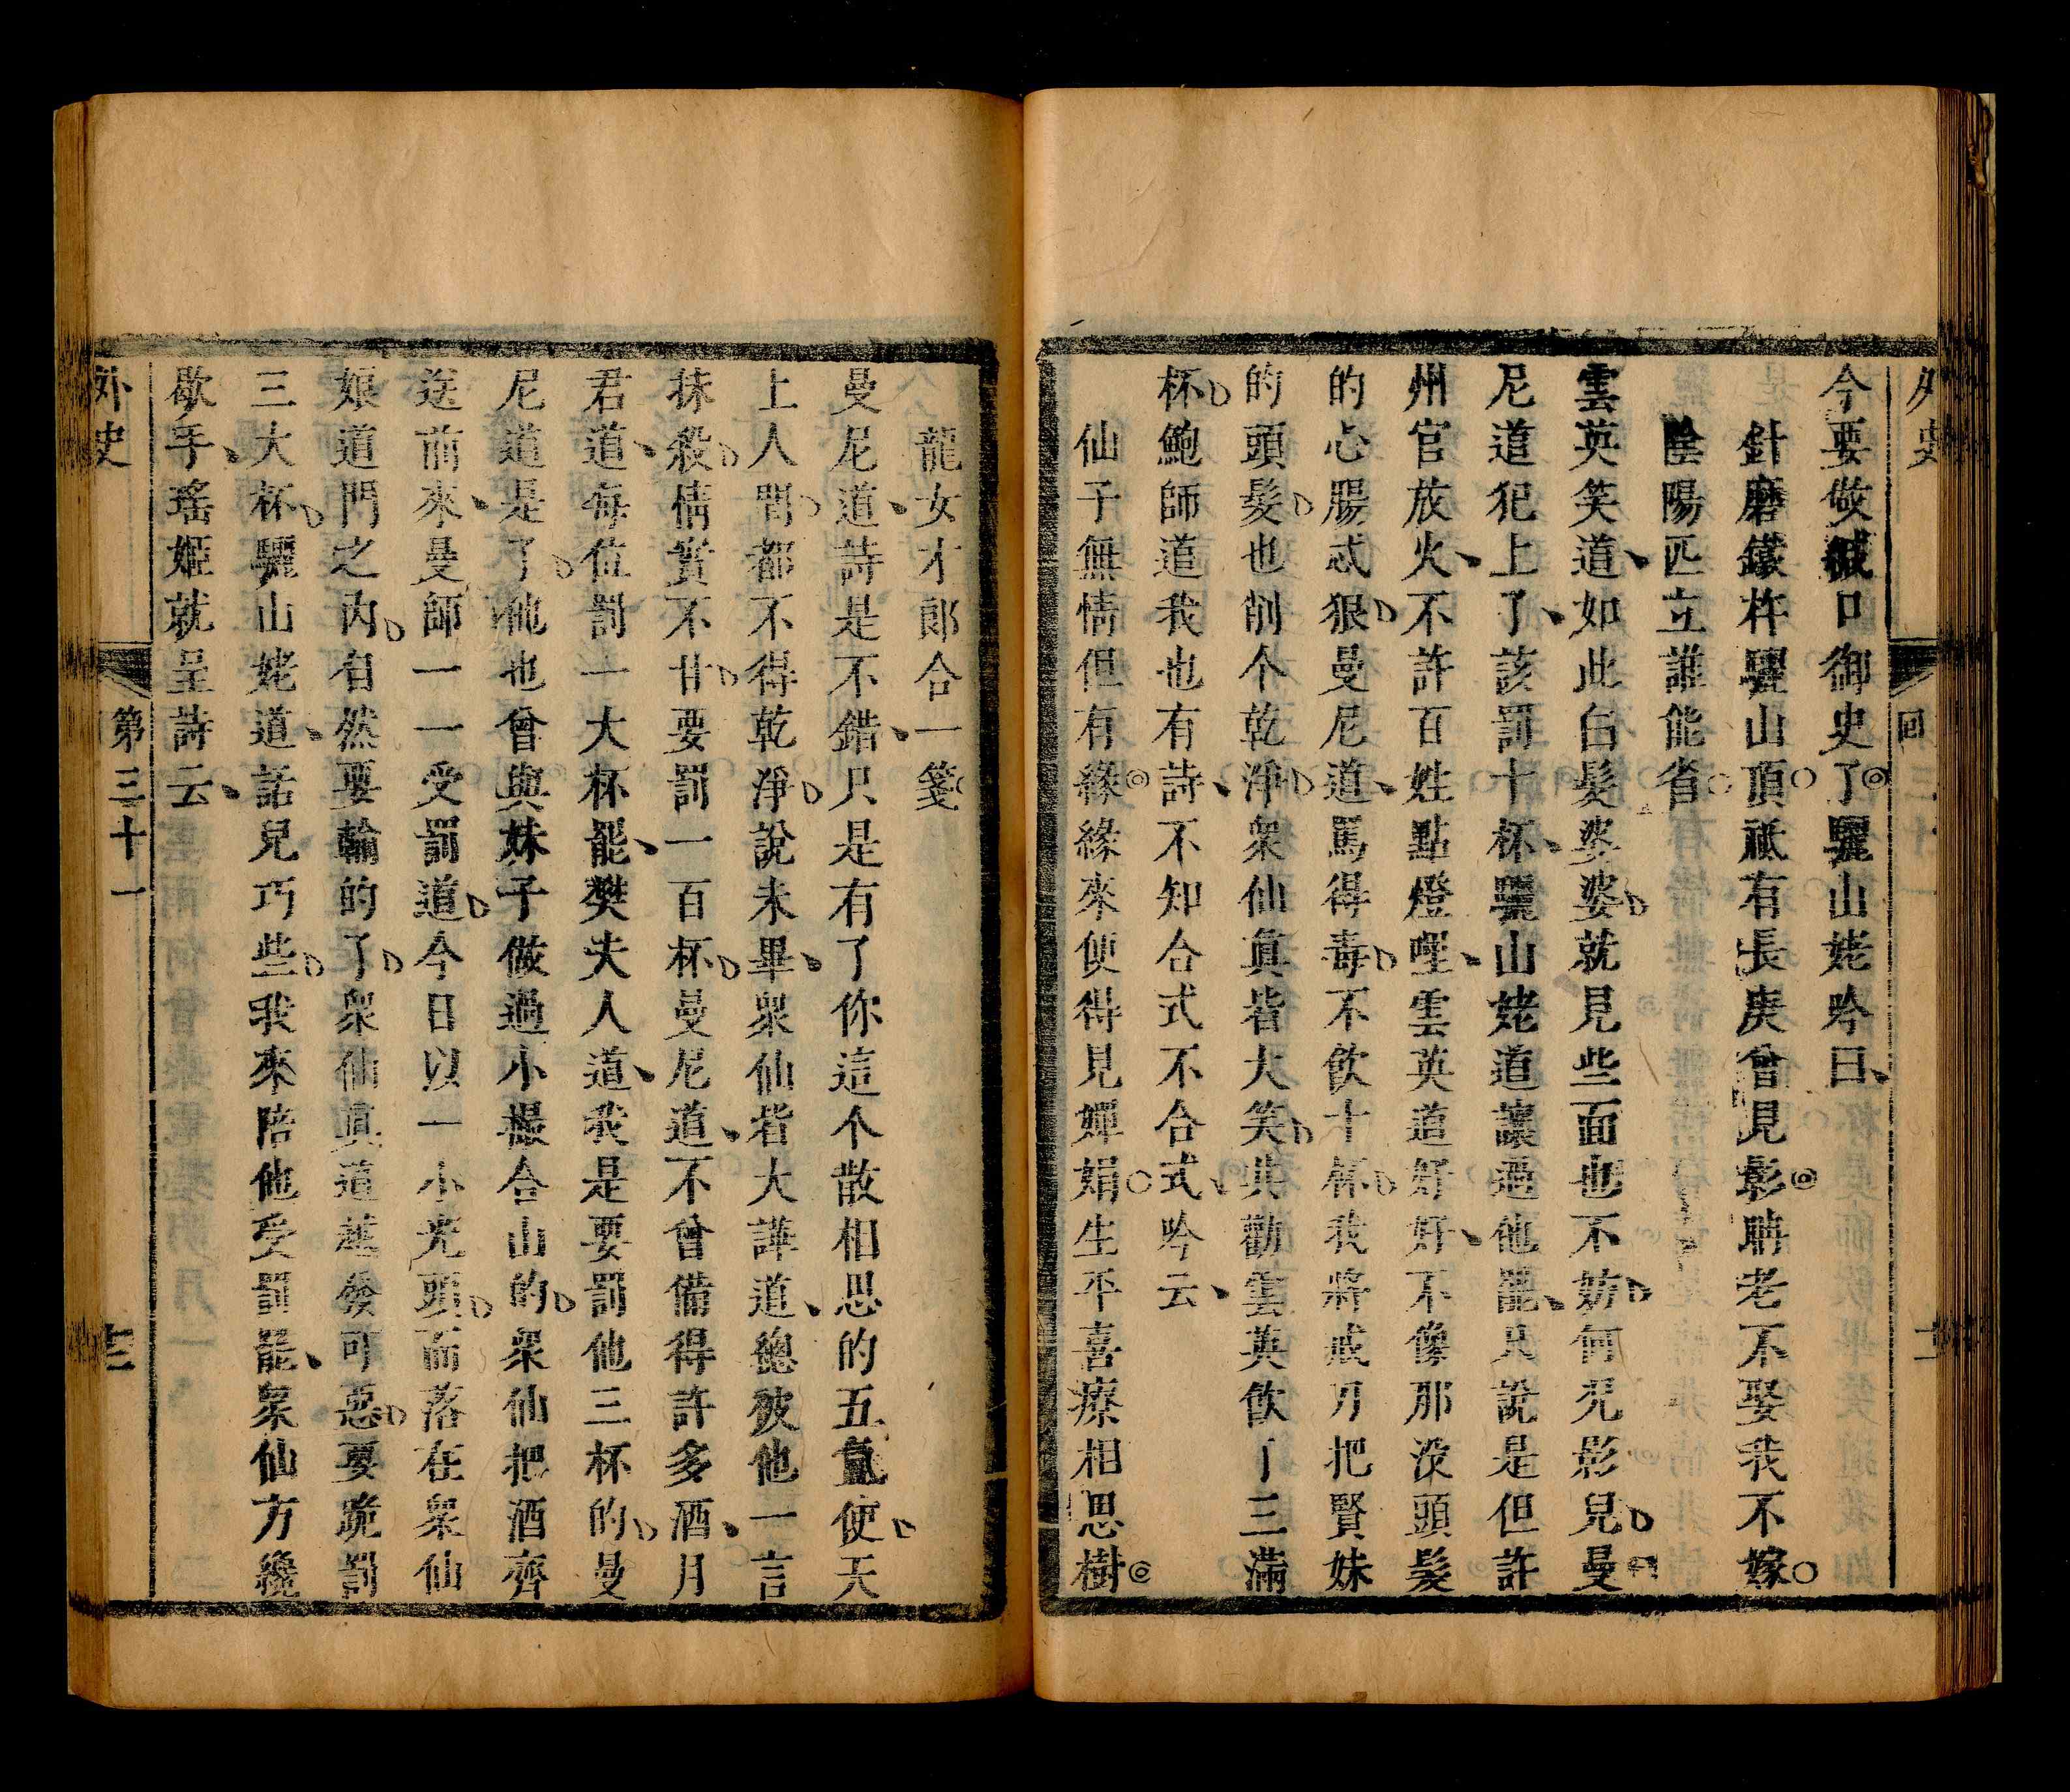 外史
回
今要做緘口御史了驪山姥吟曰
針磨鐵杵驪山頂祗有長庚曾見影聘老不娶我不嫁
陰陽匹立誰能省
雲英笑道如此白髮婆婆就見些面也不妨何况影兒曼
尼道犯上了該罰十杯驪山姥道讓過他罷只說是但許
州官放火不許百姓點燈哩雲英道好好不像那沒頭髮
的心腸忒狠曼尼道罵得毒不飲十杯我將戒刀把賢妹
的頭髮也削个乾淨衆仙眞皆大笑共勸雲英飲了三滿
杯鮑師道我也有詩不知合式不合式吟云
仙子無情但有緣緣來便得見嬋娟生平喜療相思樹
龍女才郎合一箋
曼尼道詩是不錯只是有了你這个散相思的五氲使天
上人間都不得乾淨說未畢衆仙皆大譁道總被他一言
抹殺情實不甘要罰一百杯曼尼道不曾備得許多酒月
君道每位罰一大杯罷樊夫人道我是要罰他三杯的曼
尼道是了他也曾與妹子做過小撮合山的衆仙把酒齊
送前來曼師一一受罰道今日以一小光頭而落在衆仙
娘道門之內自然要輸的了衆仙眞道越發可惡要跪罰
三大杯驪山姥道話兒巧些我來陪他受罰罷衆仙方纔
歇手瑤姬就呈詩云
外史
第三十一
十三